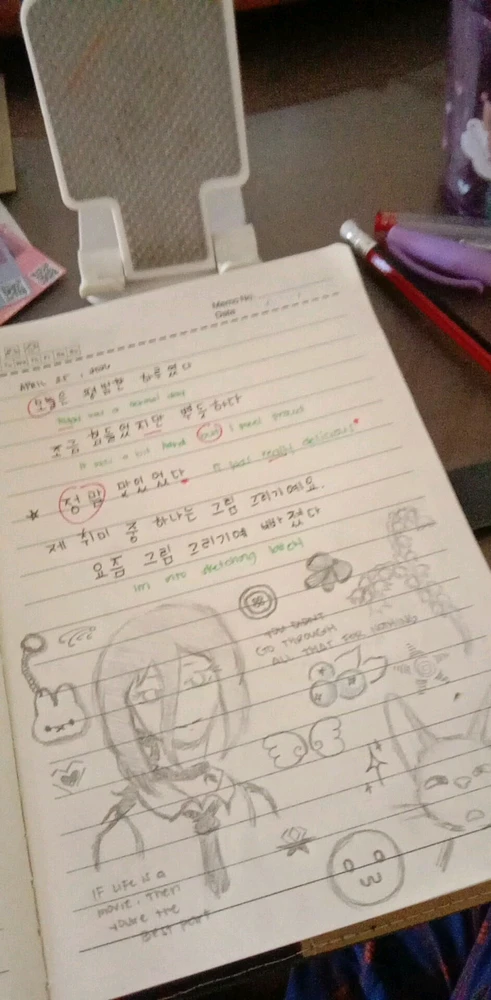 Memo No.
Date
APRIL 25, 2026
오늘은 평범한 하루였다
was a normal day
조금 힘들었지만 뿌듯하다
It was a bit hard but I feel proud
★ 정말 맛있었다. It was really delicious
제 취미 중 하나는 그림 그리기예요.
요즘 그림 그리기에 빠졌다
im into sketching lately
YOU DIDNT
GO THROUGH
ALL THAT FOR NOTHING
IF LIFE IS A
MOVIE. Then
youre the
BEST PART